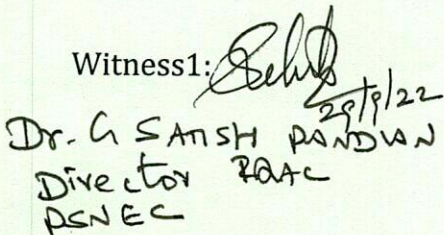 Witness1:
29/9/22
Dr. G SATISH PANDIAN
Director IQAC
PSNEC